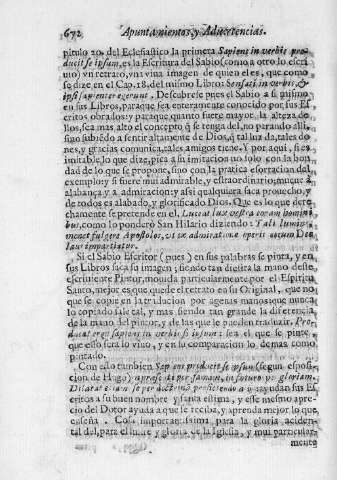 672 Apuntamientos, y Aduertencias.
pitulo 20. del Eclesiastico la primera Sapiens in verbis pro-
ducit se ipsum, es la Escritura del Sabio (como a otro lo escri-
uo) vn retrato, vna viua imagen de quien el es, que como
se dize en el Cap. 18. del mismo Libro: Sensati in verbis, &
ipsi sapienter egerunt. Descubrese pues el Sabio a si mismo
en sus Libros, para que sea enteramente conocido por sus Es
critos obrados: y para que quanto fuere mayor la alteza de
llos, sea mas alto el concepto q̃ se tenga del, no parando alli,
sino subiẽdo a sentir altamente de Dios, q̃ tal luz da, tales do
nes, y gracias comunica, tales amigos tiene. Y por aqui, si es
imitable lo que dize, pica a su imitacion no solo con la bon-
dad de lo que se propone, sino con la pratica esortacion del
exemplo: y si fuere mui admirable, y estraordinario, mueue a
alabança y a admiracion: y assi qualquiera saca prouecho, y
de todos es alabado, y glorificado Dios. Que es lo que dere
chamente se pretende en el. Luceat lux vestra coram homini
bus, como lo ponderò San Hilario diziendo: Tali lumine
monet fulgere Apostolos, vt ex admiratione operis eorum Deo
laus impartiatur.
Si el Sabio Escritor (pues) en sus palabras se pinta, y en
sus Libros saca su imagen; siendo tan diestra la mano deste
escriuiente Pintor, mouida particularmente por el Espiritu
Santo, mejor es que quede el retrato en su Original, que no
que se copie en la traducion por agenas manos: que nunca
lo copiado sale tal, y mas siendo tan grande la diferencia
de la mano del pintor, y de las que le pueden traduzir. Pro-
ducat ergo sapiens in verbis se ipsum: sea el que se pinte,
que esso serà lo viuo, y en su comparacion lo demas como
pintado.
Con esto tambien Sapiens producit se ipsum (segun esposi-
cion de Hugo) a præsenti per famam, in futuro per gloriam.
Dilatat etiam se per doctrinam proficiendo: y ayudan sus Es
critos a su buen nombre y fama estima, y esse mesmo apre-
cio del Dotor ayuda a que se reciba, y aprenda mejor lo que
enseña. Cosa importantissima para la gloria acciden-
tal del, para el lustre y gloria de la Iglesia, y mui particular-
mente